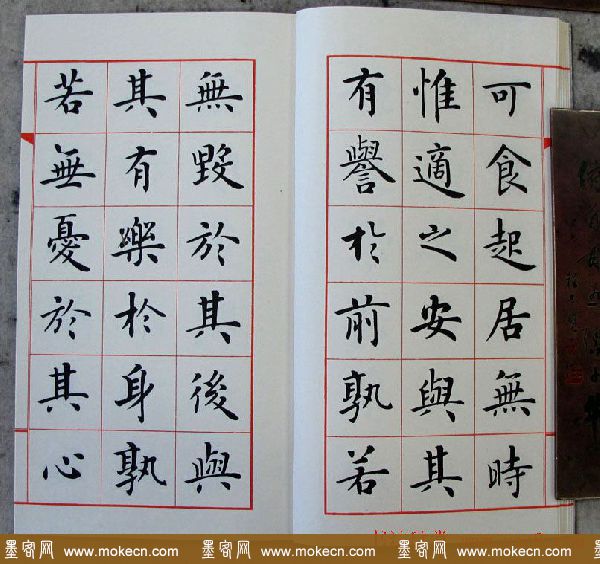 可食起居無時
惟適之安與其
有譽於前孰若
無毀於其後與
其有樂於身孰
若無憂於其心
墨客网 www.mokecn.com 墨客网 www.mokecn.com 墨客网 www.mokecn.com